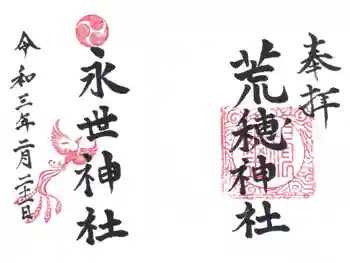 奉拝
荒穂神社
永世神社
令和三年二月二十一日